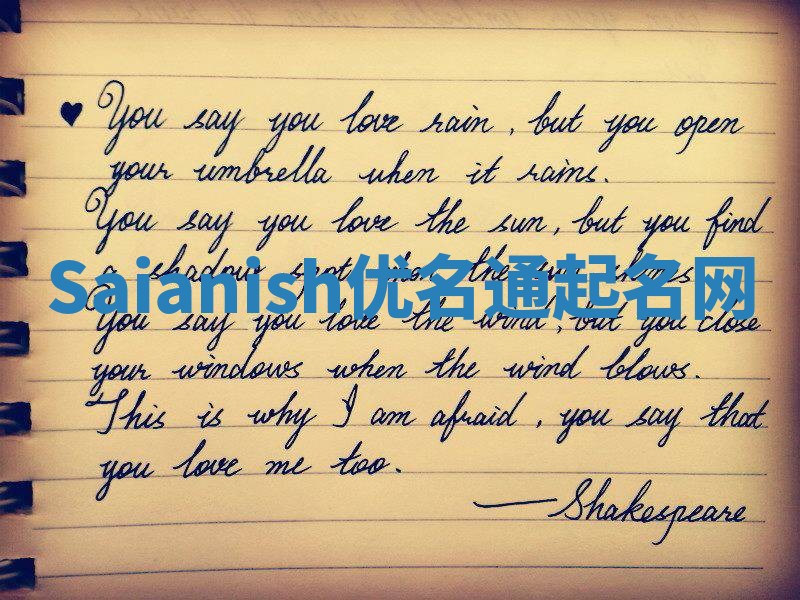 ♥ You say you love rain, but you open
your umbrella when it rains.
You say you love the sun, but you find
a shadow spot when the sun shines
Saianish优名通起名网
You say you love the wind, but you close
your windows when the wind blows.
This is why I am afraid, you say that
you love me too.
— Shakespeare